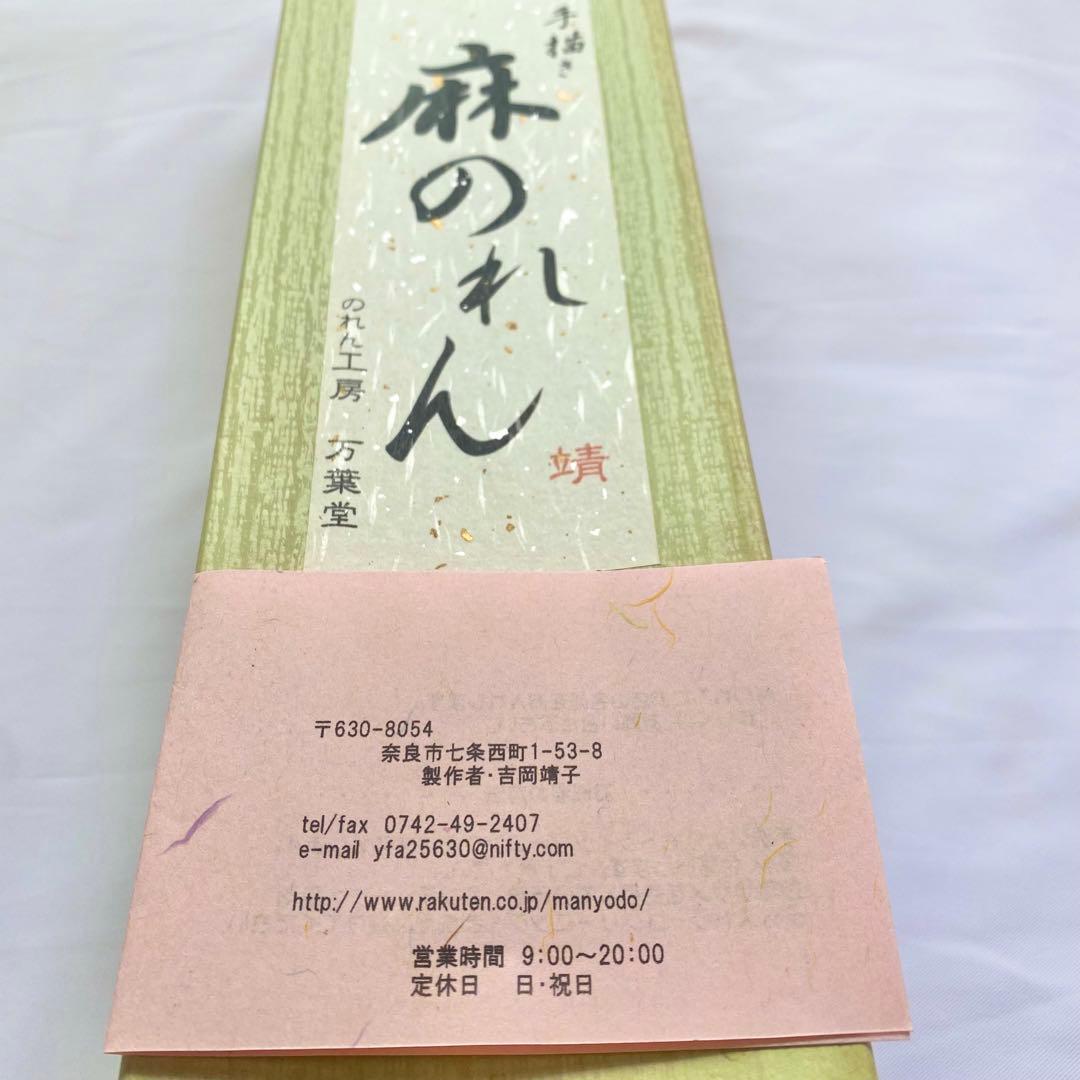 手描き
麻のれん
のれん工房 万葉堂
靖
〒630-8054
奈良市七条西町1-53-8
製作者・吉岡靖子
tel/fax 0742-49-2407
e-mail yfa25630@nifty.com
http://www.rakuten.co.jp/manyodo/
営業時間 9:00～20:00
定休日 日・祝日